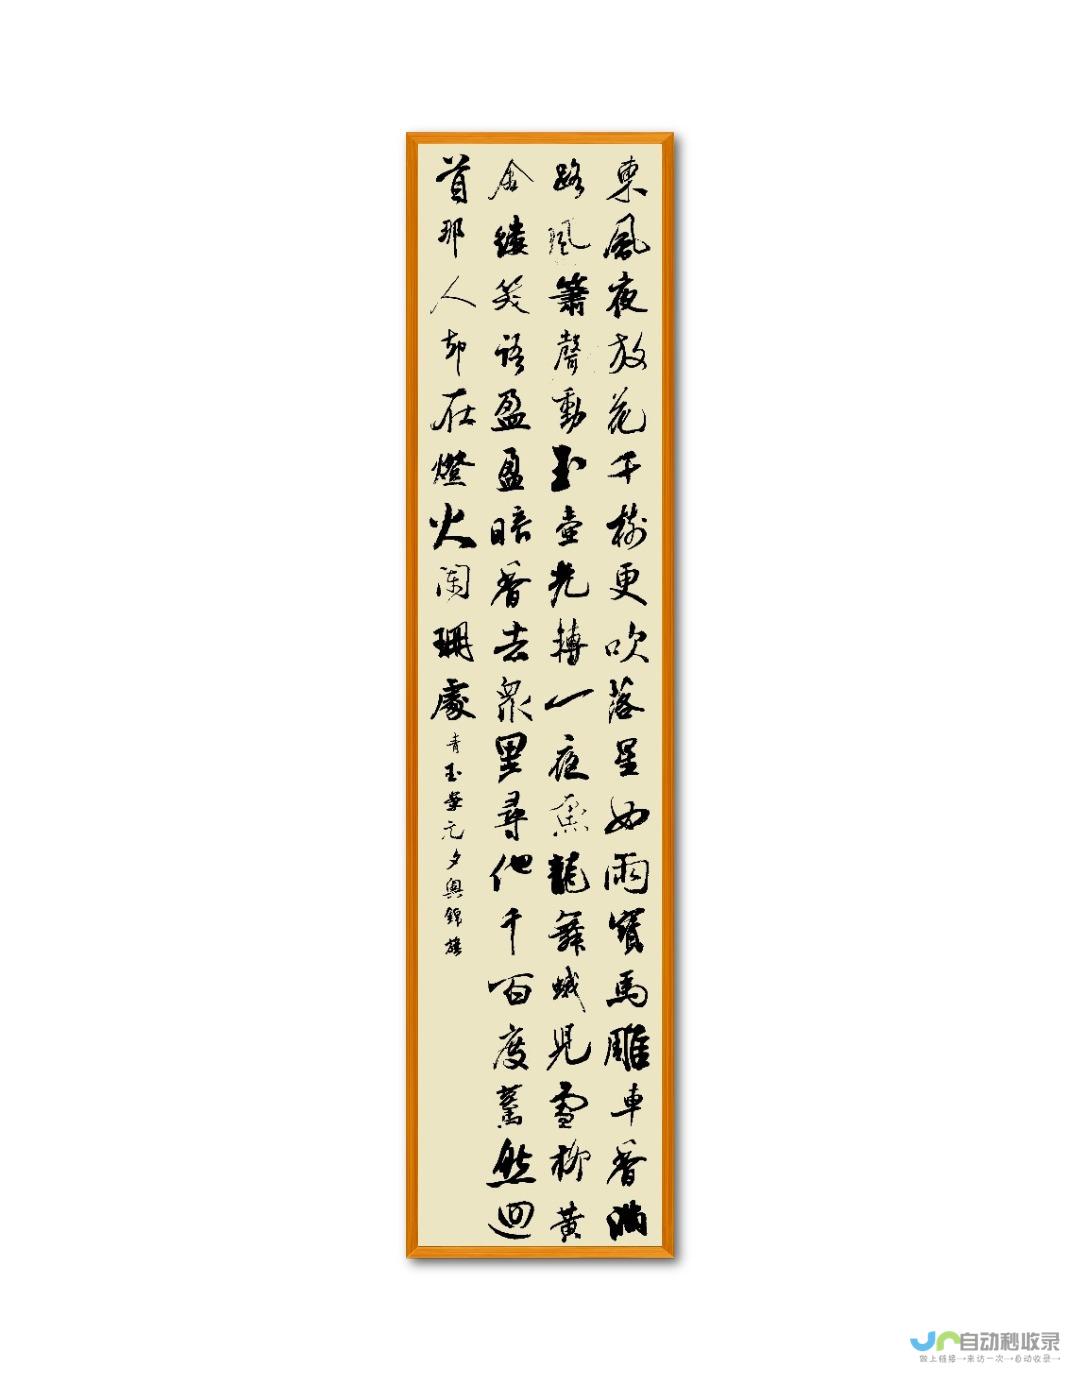 東風夜放花千樹更吹落星如雨寶馬雕車香滿
路鳳簫聲動玉壺光轉一夜魚龍舞蛾兒雪柳黃
金縷笑語盈盈暗香去衆里尋他千百度驀然迴
首那人却在燈火闌珊處青玉案元夕錦旗
自动秒收录
做上链接→来访一次→自动收录→